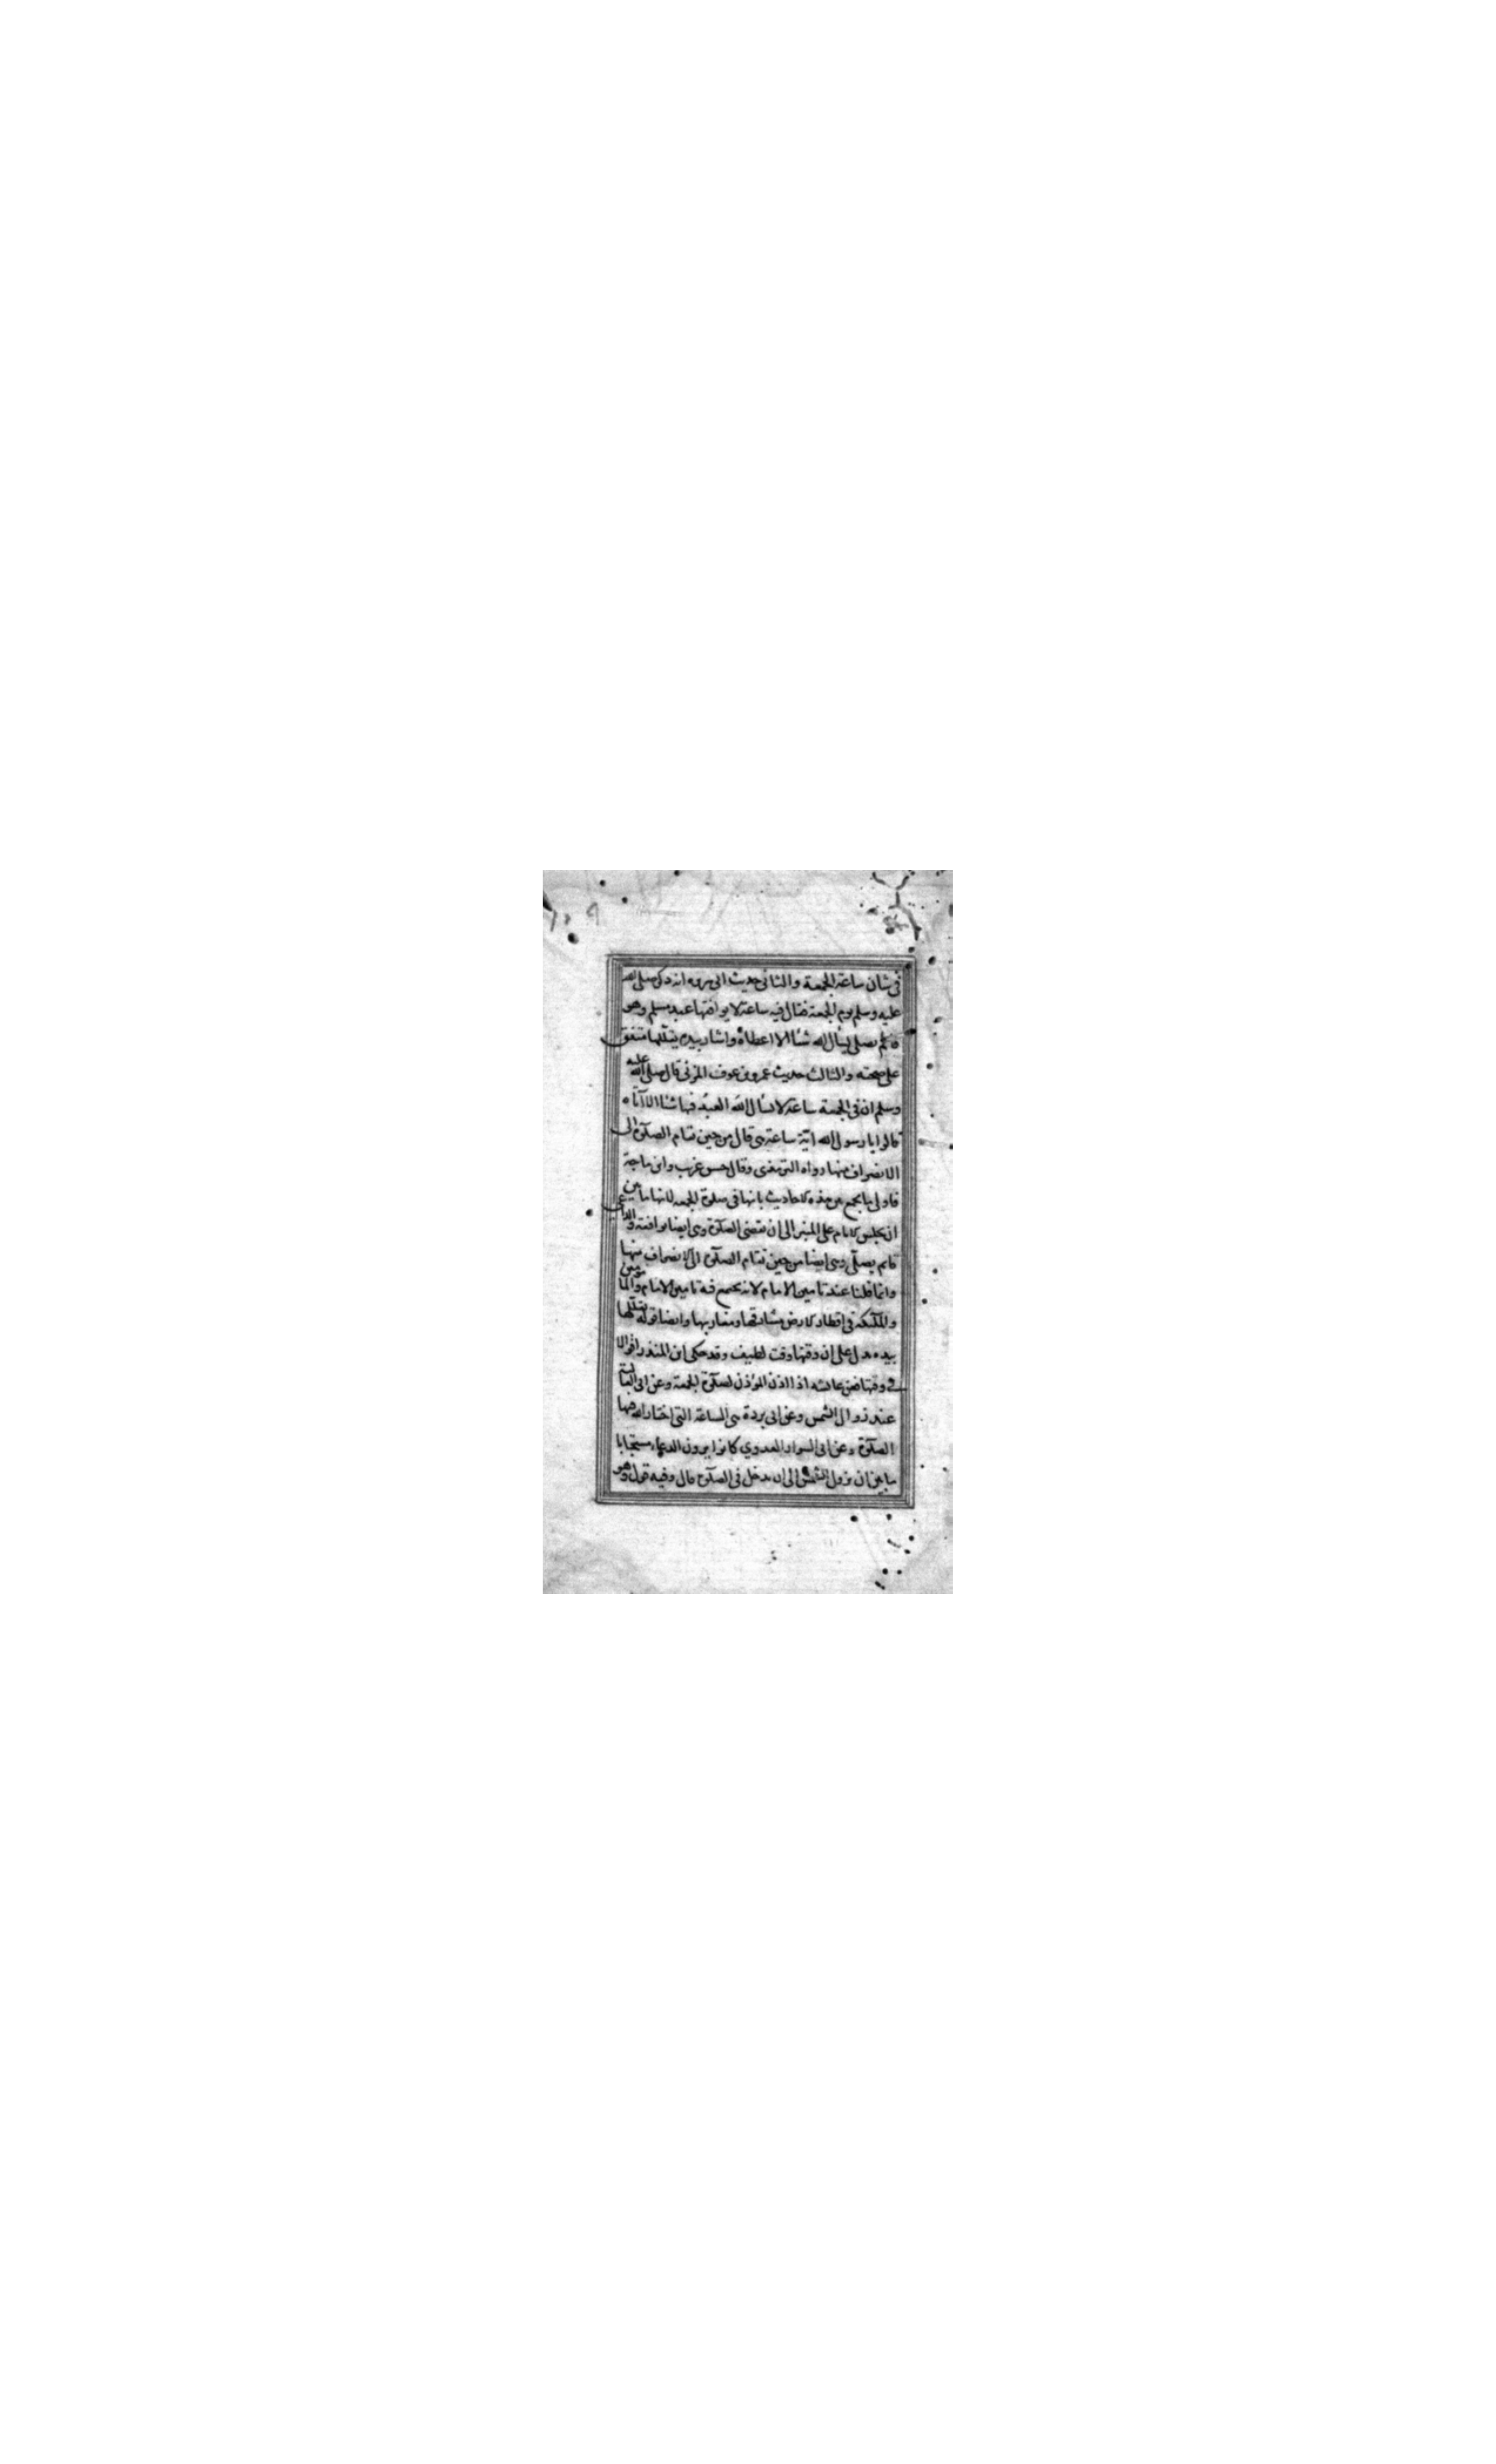 في شان ساعة الجمعة والثاني حديث ابي هريره انه ذكر صلى الله
عليه وسلم يوم الجمعة فقال فيه ساعة لا يوافقها عبد مسلم وهو
قائم يصلي يسأل الله شئا الا اعطاه واشار بيده يقللها متفق
على صحته والثالث حديث عمرو بن عوف المزني قال صلى الله عليه
وسلم ان في الجمعة ساعة لا يسأل الله العبد فيها شئا الا آتاه
قالوا يا رسول الله اية ساعة هي قال من حين تقام الصلوة الى
الانصراف منها رواه الترمذي وقال حسن غريب وابن ماجة
فاولى ما يجمع من هذه الاحاديث بانها في صلوة الجمعه لانها ما بين
ان يجلس الامام على المنبر الى ان تقضى الصلوة وهي ايضا يوافقه والداعي
قائم يصلي وهي ايضا من حين تقام الصلوة الى الانصراف منها
وانما قلنا عند تامين الامام لانه يجتمع فيه تامين الامام والمامومين
والملئكة في اقطار الارض مشارقها ومغاربها وايضا قوله يقللها
بيده يدل على ان وقتها وقت لطيف وقد حكى ابن المنذر اقوالا
في وقتها فعن عائشه اذا اذن المؤذن لصلوة الجمعة وعن ابي العالية
عند زوال الشمس وعن ابي بردة هي الساعة التي اختار الله فيها
الصلوة وعن ابي السوار العدوي كانوا يرون الدعاء مستجابا
ما بين ان تزول الشمس الى ان يدخل في الصلوة قال وفيه قول وهو